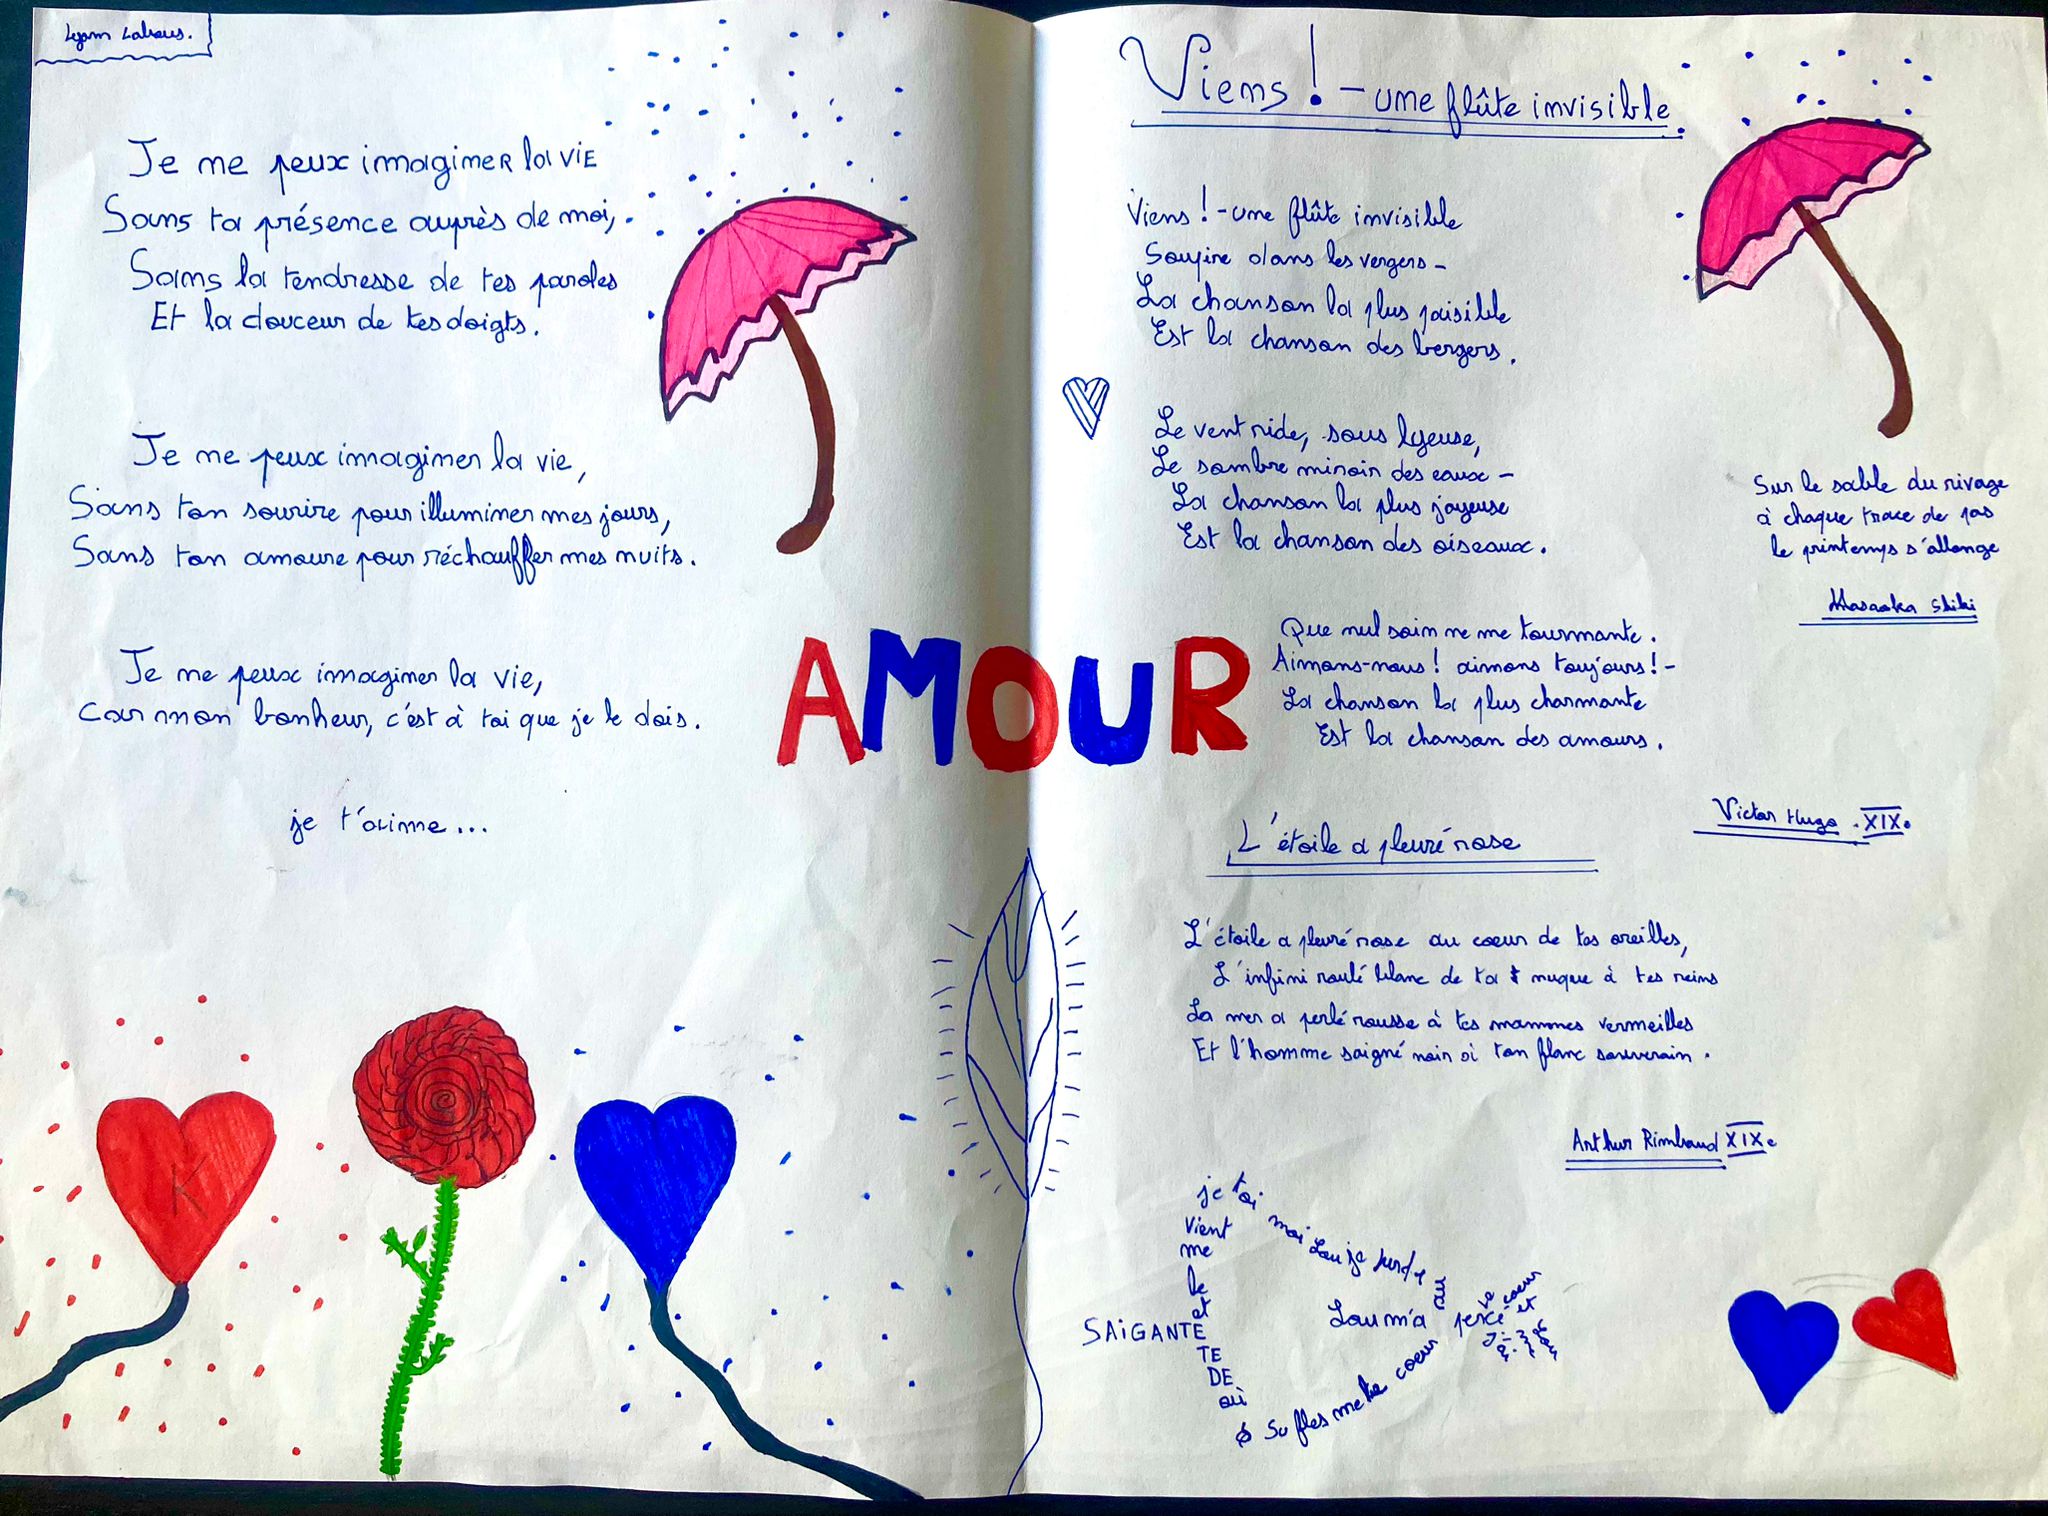 Je ne peux imaginer la vie
Sans ta présence auprès de moi,
Sans la tendresse de tes paroles
Et la douceur de tes doigts.
Je ne peux imaginer la vie,
Sans ton sourire pour illuminer mes jours,
Sans ton amoure pour réchauffer mes nuits.
Je ne peux imaginer la vie,
Car mon bonheur, c'est à toi que je le dois.
je t'aime...
AMOUR
K
Viens ! - une flûte invisible
Viens ! - une flûte invisible
Soupire dans les vergers -
La chanson la plus paisible
Est la chanson des bergers.
Le vent ride, sous lyeuse,
Le sombre miroir des eaux -
La chanson la plus joyeuse
Est la chanson des oiseaux.
Que nul soin ne me tourmante.
Aimons-nous ! aimons toujours ! -
La chanson la plus charmante
Est la chanson des amours.
Victor Hugo . XIXe
Sur le sable du rivage
à chaque trace de pas
le printemps s'allonge
Masaoka Shiki
L'étoile a pleuré rose
L'étoile a pleuré rose au coeur de tes oreilles,
L'infini roulé blanc de ta nuque à tes reins
La mer a perlé rousse à tes mammes vermeilles
Et l'homme saigné noir à ton flanc souverain.
Arthur Rimbaud XIXe
je toi moi Lou je
vient
me
le
et
SAIGANTE
TE
DE
où
Lou m'a percé le coeur et
metre coeur